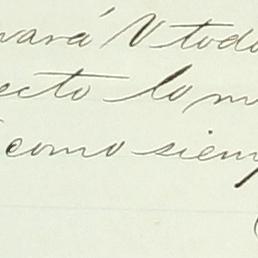 vará V todo
ecto lo m
como siem